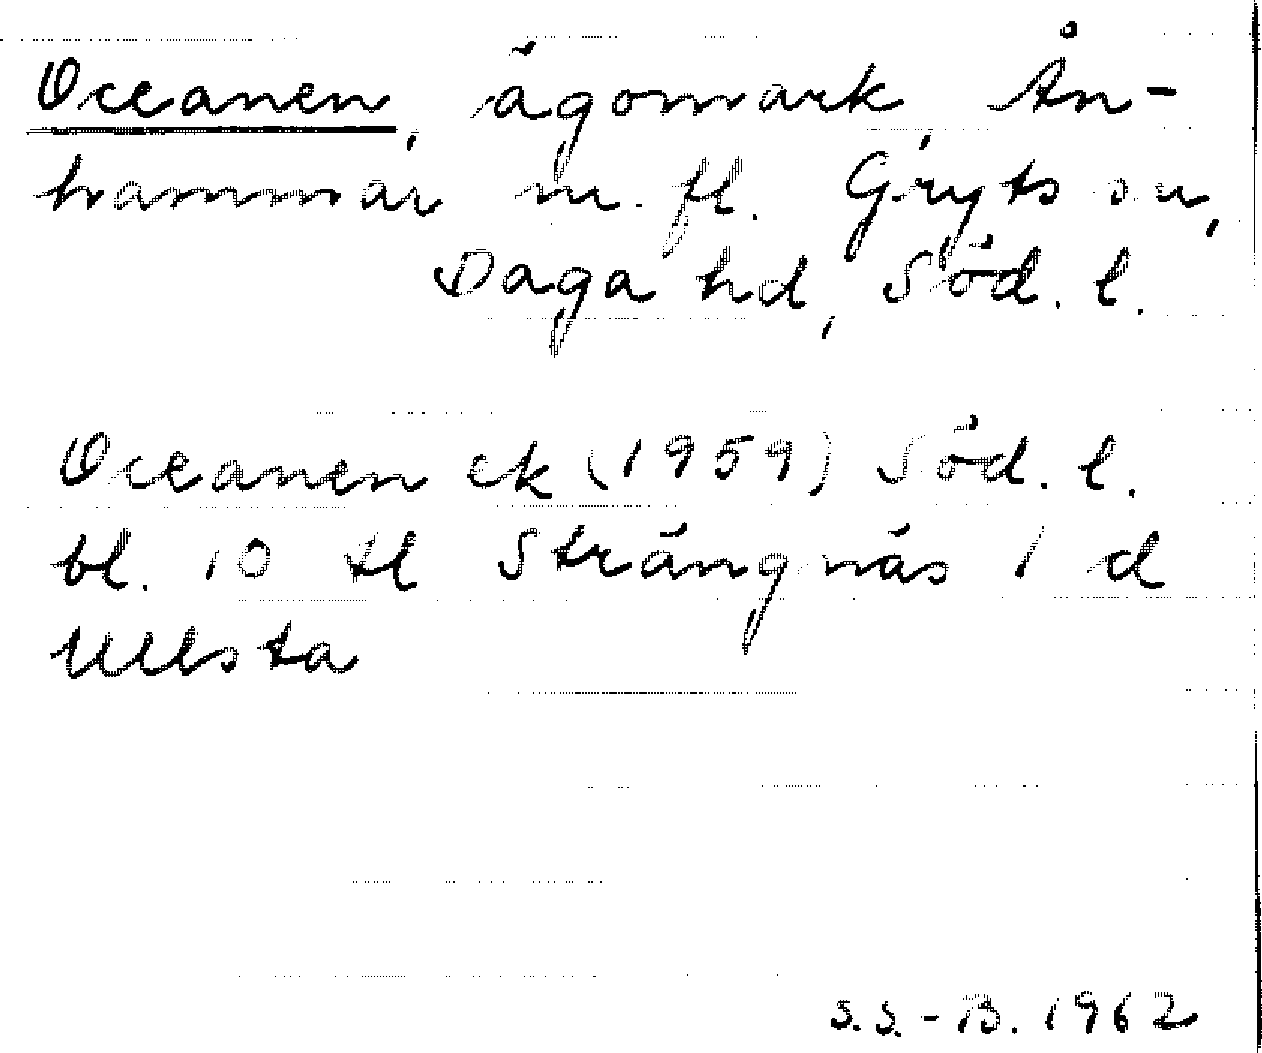 Oceanen, ägomark, Ån-
hammar m. fl. Gryts sn,
Daga hd, Söd. l.
Oceanen ek (1959) Söd. l.
bl. 10 tl Strängnäs 1 d
Ullsta
S.S.-B. 1962